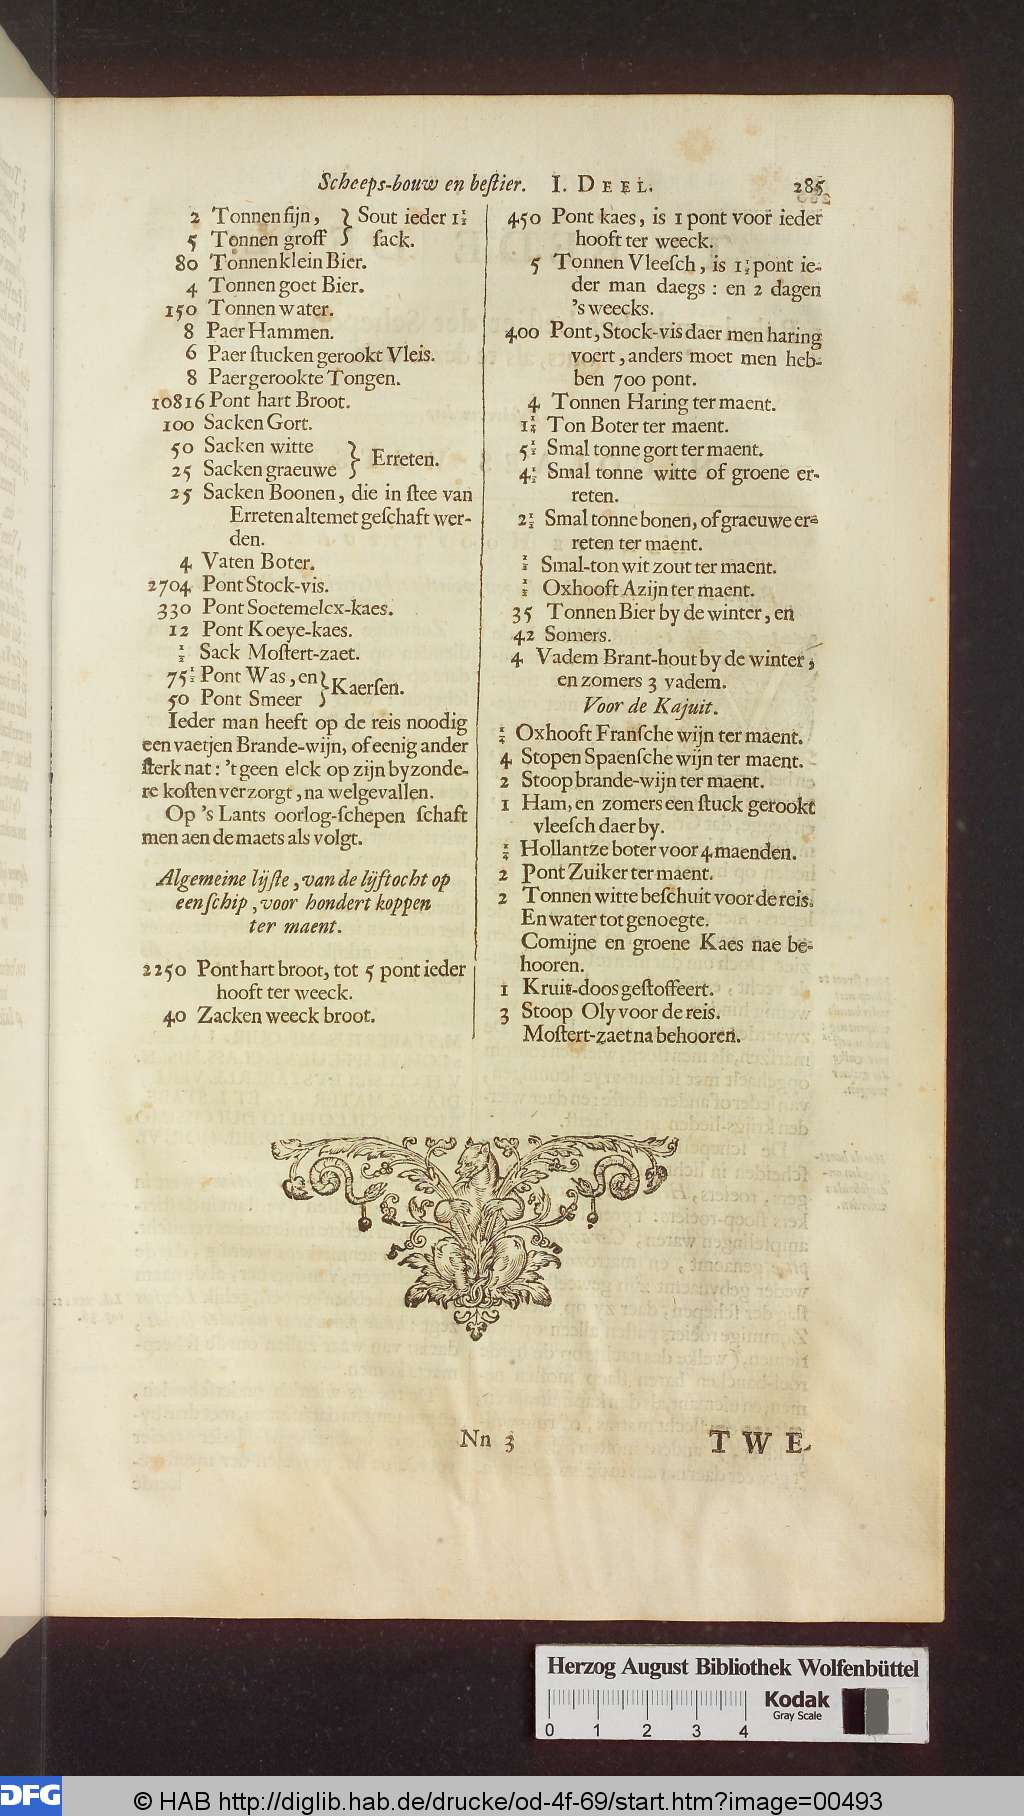 Scheeps-bouw en beſtier. I. DEEL. 285
2 Tonnen fijn, } Sout ieder 1½
5 Tonnen groff } ſack.
80 Tonnen klein Bier.
4 Tonnen goet Bier.
150 Tonnen water.
8 Paer Hammen.
6 Paer ſtucken gerookt Vleis.
8 Paer gerookte Tongen.
10816 Pont hart Broot.
100 Sacken Gort.
50 Sacken witte } Erreten.
25 Sacken graeuwe }
25 Sacken Boonen, die in ſtee van
Erreten altemet geſchaft wer-
den.
4 Vaten Boter.
2704 Pont Stock-vis.
330 Pont Soetemelcx-kaes.
12 Pont Koeye-kaes.
½ Sack Moſtert-zaet.
75½ Pont Was, en } Kaerſen.
50 Pont Smeer }
Ieder man heeft op de reis noodig
een vaetjen Brande-wijn, of eenig ander
ſterk nat: 't geen elck op zijn byzonde-
re koſten verzorgt, na welgevallen.
Op 's Lants oorlog-ſchepen ſchaft
men aen de maets als volgt.
Algemeene lijſte, van de lijftocht op
een ſchip, voor hondert koppen
ter maent.
2250 Pont hart broot, tot 5 pont ieder
hooft ter weeck.
40 Zacken weeck broot.
450 Pont kaes, is 1 pont voor ieder
hooft ter weeck.
5 Tonnen Vleeſch, is 1½ pont ie-
der man daegs: en 2 dagen
's weecks.
400 Pont, Stock-vis daer men haring
voert, anders moet men heb-
ben 700 pont.
4 Tonnen Haring ter maent.
1¼ Ton Boter ter maent.
5½ Smal tonne gort ter maent.
4½ Smal tonne witte of groene er-
reten.
2½ Smal tonne bonen, of graeuwe er-
reten ter maent.
½ Smal-ton wit zout ter maent.
½ Oxhooft Azijn ter maent.
35 Tonnen Bier by de winter, en
42 Somers.
4 Vadem Brant-hout by de winter,
en zomers 3 vadem.
Voor de Kajuit.
¼ Oxhooft Franſche wijn ter maent.
4 Stopen Spaenſche wijn ter maent.
2 Stoop brande-wijn ter maent.
1 Ham, en zomers een ſtuck gerookt
vleeſch daer by.
¼ Hollantze boter voor 4 maenden.
2 Pont Zuiker ter maent.
2 Tonnen witte beſchuit voor de reis.
En water tot genoegte.
Comijne en groene Kaes nae be-
hooren.
1 Kruit-doos geſtoffeert.
3 Stoop Oly voor de reis.
Moſtert-zaet na behooren.
Nn 3 TWE-
Herzog August Bibliothek Wolfenbüttel
Kodak
Gray Scale
0 1 2 3 4
DFG © HAB http://diglib.hab.de/drucke/od-4f-69/start.htm?image=00493